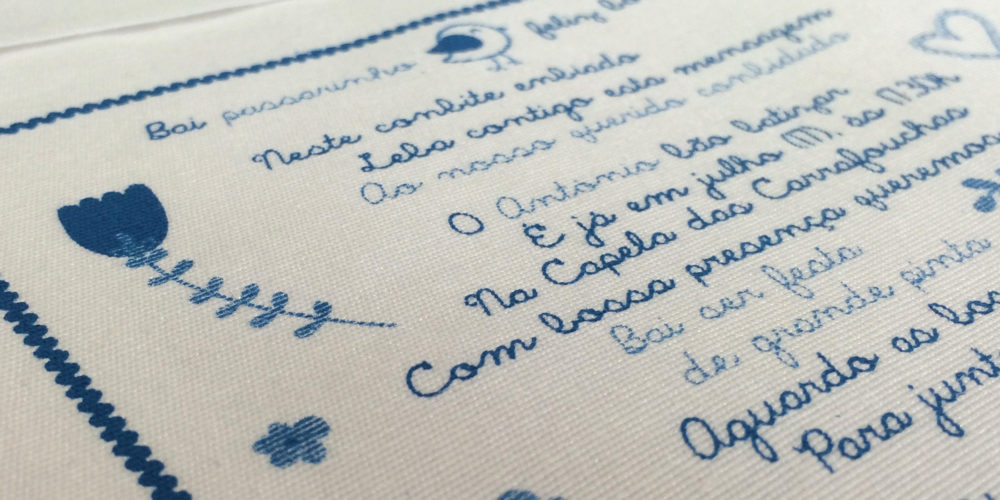 Bai passarinho feliz
Neste combite embiado
Leba contigo esta mensagem
Ao nosso querido combidado
O António bão batizar
É já em julho às
Na Capela das Carrafouchas
Com bossa presença queremos
Bai ser festa
de grande pinta
Aguardo as
Para